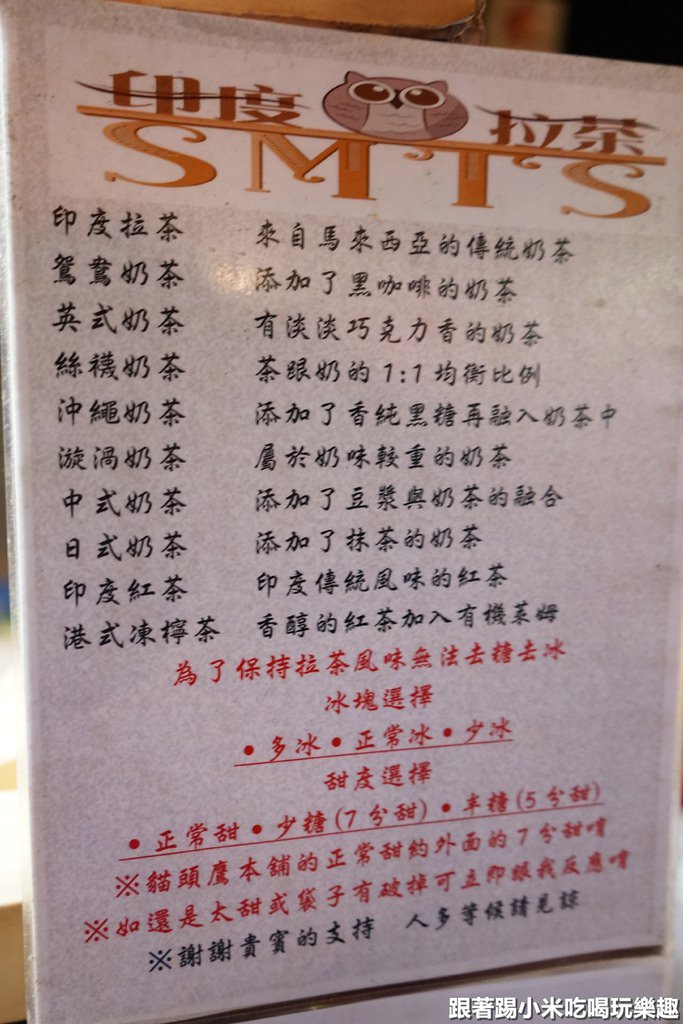 印度拉茶
SMTS
印度拉茶 來自馬來西亞的傳統奶茶
鴛鴦奶茶 添加了黑咖啡的奶茶
英式奶茶 有淡淡巧克力香的奶茶
絲襪奶茶 茶跟奶的1:1均衡比例
沖繩奶茶 添加了香純黑糖再融入奶茶中
漩渦奶茶 屬於奶味較重的奶茶
中式奶茶 添加了豆漿與奶茶的融合
日式奶茶 添加了抹茶的奶茶
印度紅茶 印度傳統風味的紅茶
港式凍檸茶 香醇的紅茶加入有機萊姆
為了保持拉茶風味無法去糖去冰
冰塊選擇
•多冰•正常冰•少冰
甜度選擇
•正常甜•少糖(7分甜)•半糖(5分甜)
※貓頭鷹本舖的正常甜約外面的7分甜唷
※如還是太甜或袋子有破掉可立即跟我反應唷
※謝謝貴賓的支持 人多等候請見諒
跟著踢小米吃喝玩樂趣